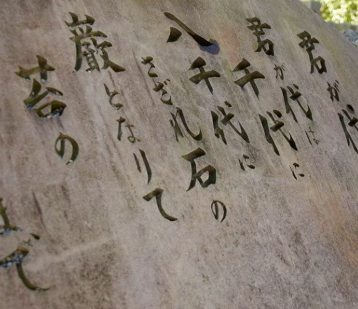 君が代
君が代は
千代に
八千代に
さざれ石の
巌となりて
苔の